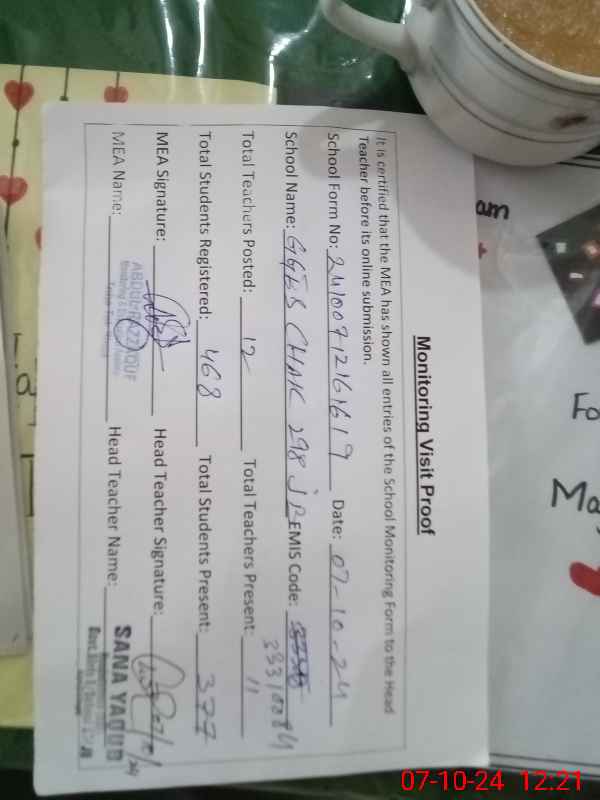 Monitoring Visit Proof
It is certified that the MEA has shown all entries of the School Monitoring Form to the Head
Teacher before its online submission.
School Form No: 241007121619 Date: 07-10-24
School Name: GGES CHAK 298 JB EMIS Code:
33310084
Total Teachers Posted: 12 Total Teachers Present: 11
Total Students Registered: 468 Total Students Present: 377
MEA Signature: Head Teacher Signature:
MEA Name: ABDUL RAZZAQ Head Teacher Name: SANA YAQUB
am
Fo
Ma
07-10-24 12:21